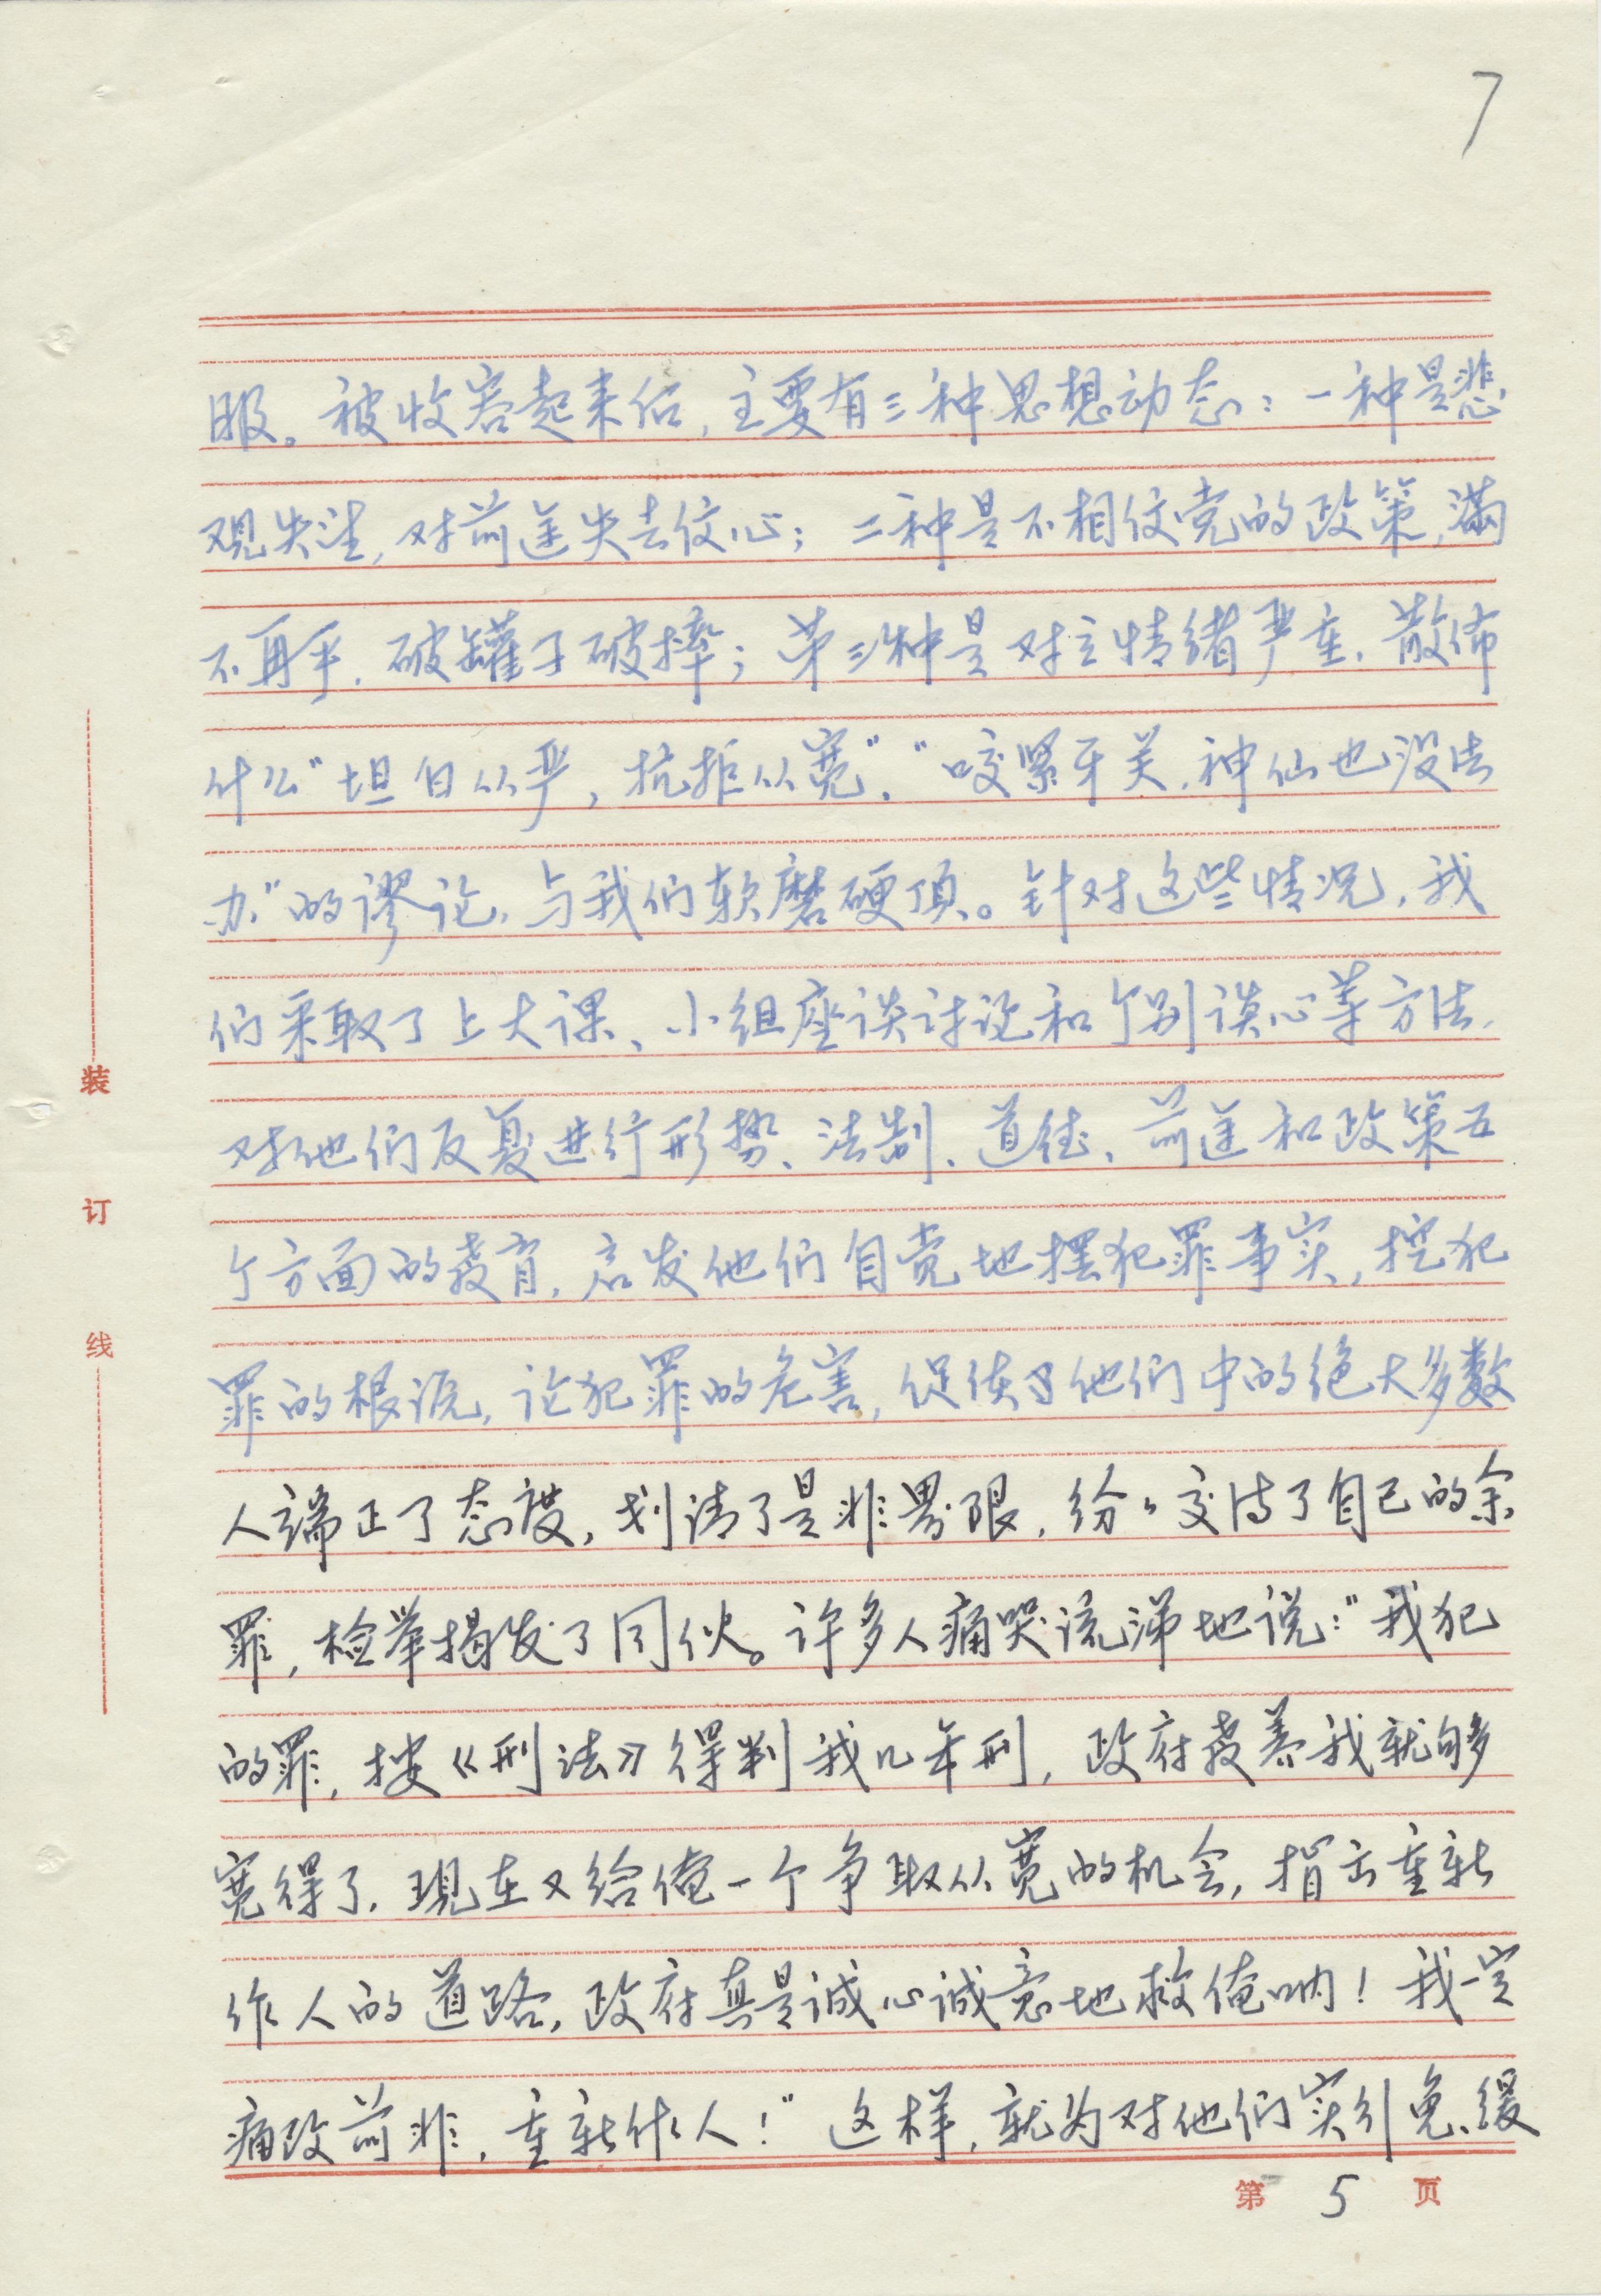 7
服。被收容起来后，主要有三种思想动态：一种是悲
观失望，对前途失去信心；二种是不相信党的政策，满
不再乎，破罐子破摔；第三种是对立情绪严重，散佈
什么“坦白从严，抗拒从宽”，“咬紧牙关，神仙也没法
办”的谬论，与我们软磨硬顶。针对这些情况，我
们采取了上大课、小组座谈讨论和个别谈心等方法，
对他们反复进行形势、法制、道德、前途和政策五
个方面的教育，启发他们自觉地摆犯罪事实，挖犯
罪的根源，论犯罪的危害，促使了他们中的绝大多数
人端正了态度，划清了是非界限，纷々交待了自己的余
罪，检举揭发了同伙。许多人痛哭流涕地说：“我犯
的罪，按《刑法》得判我几年刑，政府教养我就够
宽得了，现在又给俺一个争取从宽的机会，指出重新
作人的道路，政府真是诚心诚意地救俺呐！我一定
痛改前非，重新作人！”这样，就为对他们实行免、缓
第 5 页
装
订
线